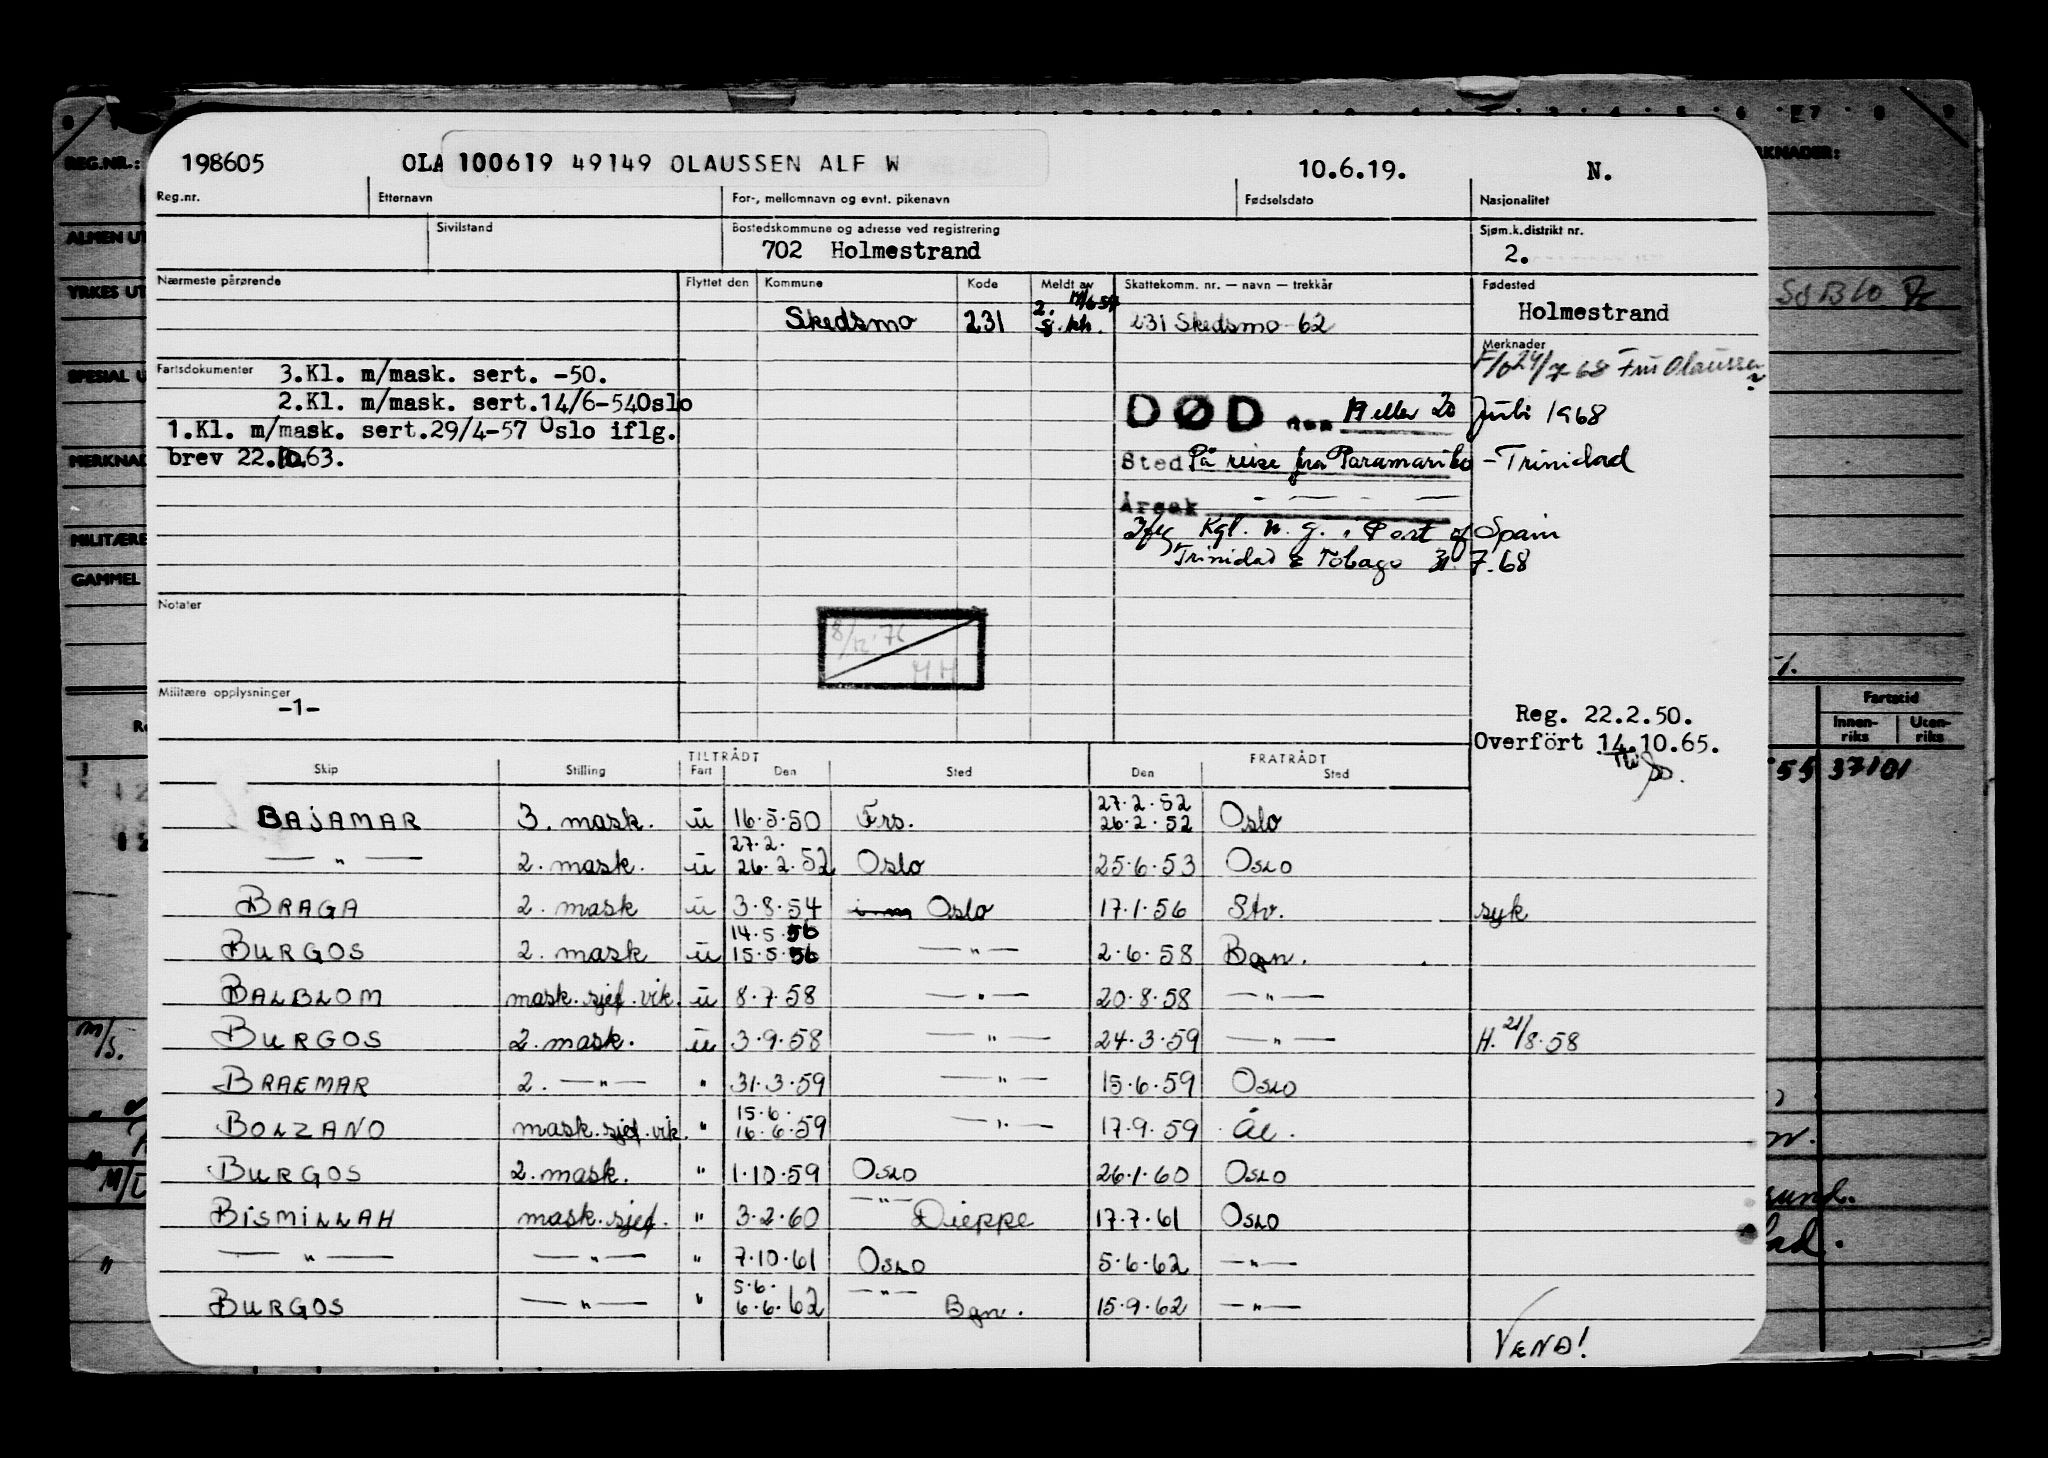 198605 OLA 100619 49149 OLAUSSEN ALF W 10.6.19. N.
Reg.nr. Etternavn For-, mellomnavn og evnt. pikenavn Fødselsdato Nasjonalitet
Sivilstand Bostedskommune og adresse ved registrering Sjøm.k.distrikt nr.
702 Holmestrand 2.
Nærmeste pårørende Flyttet den Kommune Kode Meldt av Skattekomm. nr. — navn — trekkår Fødested
Skedsmo 231 2. s.kh. 231 Skedsmo 62 Holmestrand
Merknader
24/7-68 Fru Olaussen
Fartsdokumenter 3.Kl. m/mask. sert. -50.
2.Kl. m/mask. sert.14/6-54Oslo
1.Kl. m/mask. sert.29/4-57 Oslo iflg.
brev 22.10.63.
DØD den 19 eller 20 Juli 1968
Sted På reise fra Paramaribo - Trinidad
Årsak - — - —
Ifлg Kgl. n. g. i Port of Spain
Trinidad & Tobago 31.7.68
Notater
8/12-76
MH
Militære opplysninger
-1-
Reg. 22.2.50.
Overført 14.10.65.
TILTRÅDT FRATRÅDT
Skip Stilling Fart Den Sted Den Sted
BAJAMAR 3. mask. u 16.5.50 Frs. 27.2.52 26.2.52 Oslo
— " — 2. mask. u 27.2. 26.2.52 Oslo 25.6.53 Oslo
BRAGA 2. mask u 3.8.54 Oslo 17.1.56 Stv. syk
BURGOS 2. mask u 14.5.56 15.5.56 — " — 2.6.58 Bgn.
BALBLOM mask.sjef.vik. u 8.7.58 — " — 20.8.58 — " —
BURGOS 2. mask. u 3.9.58 " — 24.3.59 — " — H. 21/8.58
BRAEMAR 2. — " — " 31.3.59 — " — 15.6.59 Oslo
BOLZANO mask.sjef.vik. " 15.6. 16.6.59 — " — 17.9.59 Ål.
BURGOS 2. mask. " 1.10.59 Oslo 26.1.60 Oslo
BISMILLAH mask.sjef. " 3.2.60 — " — Dieppe 17.7.61 Oslo
— " — — " — " 7.10.61 Oslo 5.6.62 — " —
BURGOS — " — " 5.6. 6.6.62 — " — Bgn. 15.9.62 — " —
VEND!
REG.NR.:
ALMEN UT
YRKES UT
SPESIAL U
MERKNAD
MILITÆRE
GAMMEL
RKNADER:
Fartstid
Innen-riks Uten-riks
55 37101
m/s.